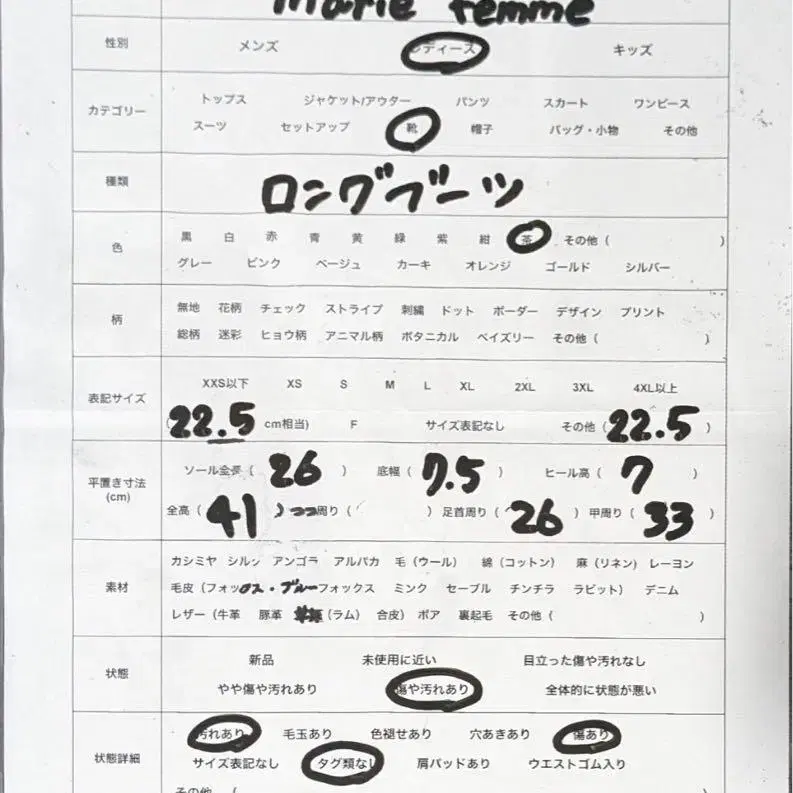 marie femme
性別 メンズ レディース キッズ
カテゴリー トップス ジャケット/アウター パンツ スカート ワンピース
スーツ セットアップ 靴 帽子 バッグ・小物 その他
種類 ロングブーツ
色 黒 白 赤 青 黄 緑 紫 紺 茶 その他 ( )
グレー ピンク ベージュ カーキ オレンジ ゴールド シルバー
柄 無地 花柄 チェック ストライプ 刺繍 ドット ボーダー デザイン プリント
総柄 迷彩 ヒョウ柄 アニマル柄 ボタニカル ペイズリー その他 ( )
表記サイズ XXS以下 XS S M L XL 2XL 3XL 4XL以上
(22.5 cm相当) F サイズ表記なし その他 ( 22.5 )
平置き寸法 (cm) ソール全長 ( 26 ) 底幅 ( 7.5 ) ヒール高 ( 7 )
全高 ( 41 ) 周り ( ) 足首周り ( 26 ) 甲周り ( 33 )
素材 カシミヤ シルク アンゴラ アルパカ 毛 (ウール) 綿 (コットン) 麻 (リネン) レーヨン
毛皮 (フォックス・ブルーフォックス ミンク セーブル チンチラ ラビット) デニム
レザー (牛革 豚革 (ラム) 合皮) ボア 裏起毛 その他 ( )
状態 新品 未使用に近い 目立った傷や汚れなし
やや傷や汚れあり 傷や汚れあり 全体的に状態が悪い
状態詳細 汚れあり 毛玉あり 色褪せあり 穴あきあり 傷あり
サイズ表記なし タグ類なし 肩パッドあり ウエストゴム入り
その他 (